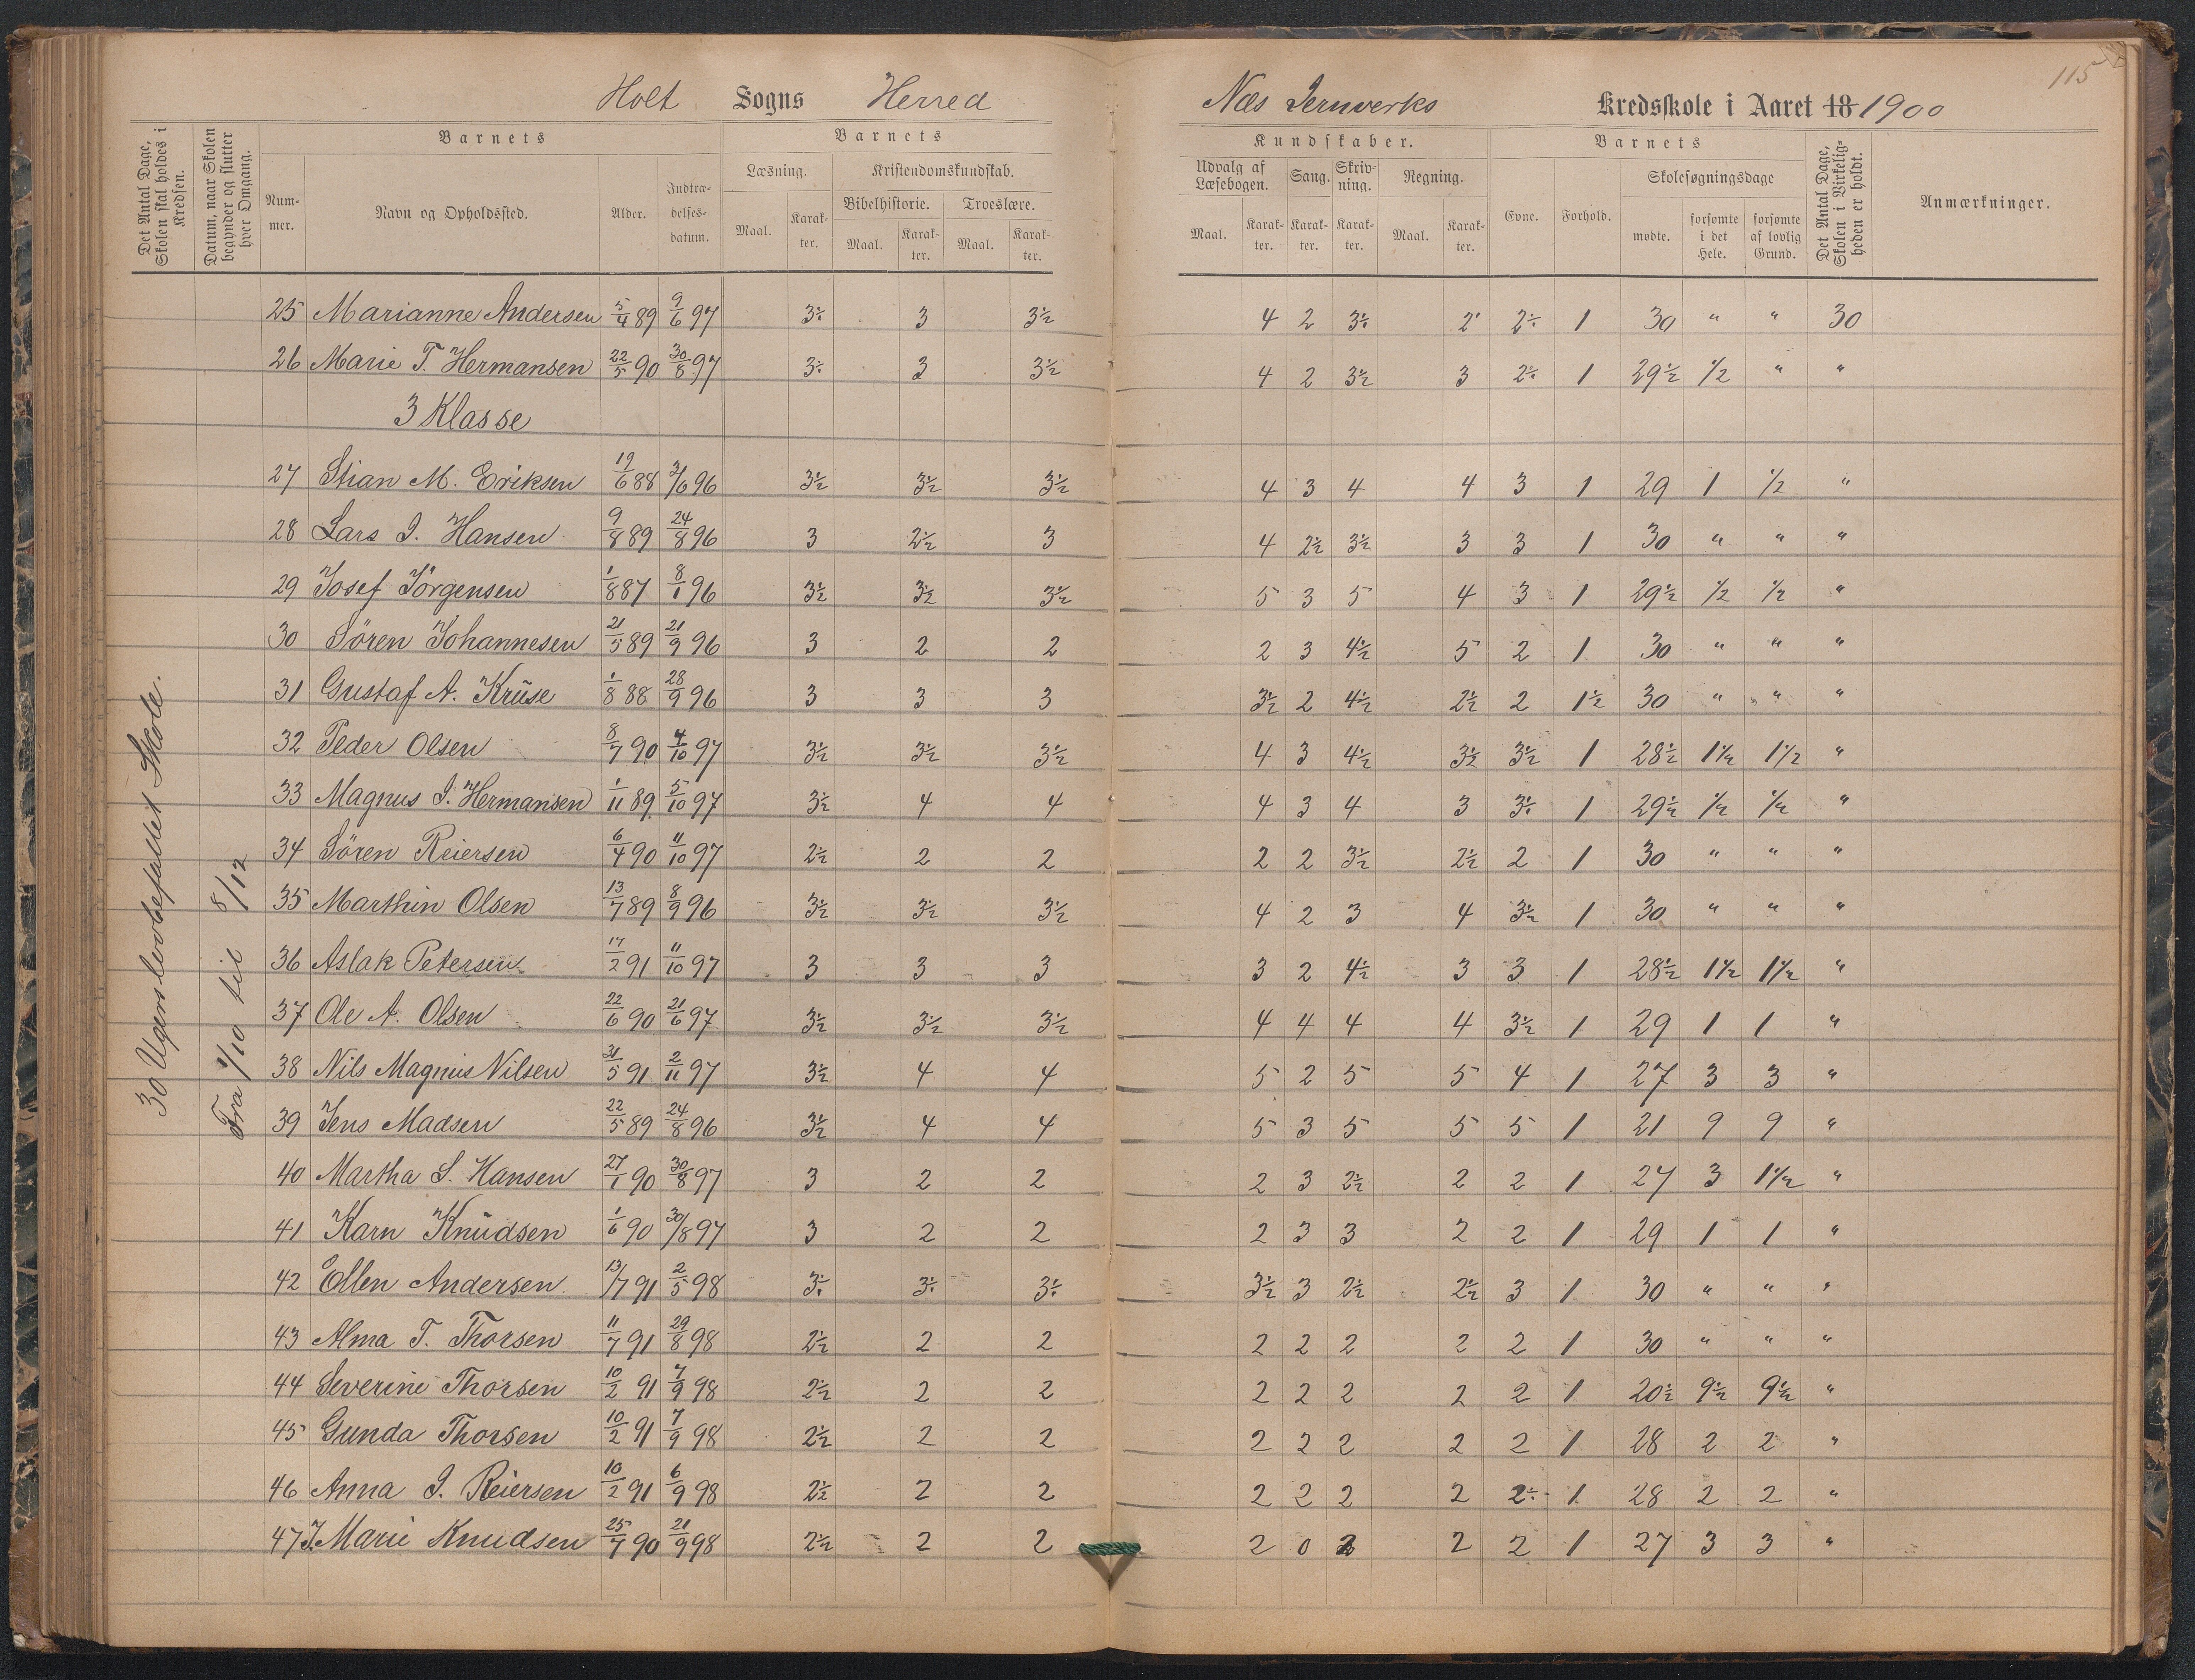 115
Holt Sogns Herred
Næs Jernverks Kredsskole i Aaret 18 1900
Det Antal Dage, Skolen skal holdes i Kredsen.
Datum, naar Skolen begynder og slutter hver Omgang.
Barnets
Nummer.
Navn og Opholdssted.
Alder.
Indtrædelsesdatum.
Barnets
Læsning.
Maal.
Karakter.
Kristendomskundskab.
Bibelhistorie.
Maal.
Karakter.
Troeslære.
Maal.
Karakter.
Kundskaber.
Udvalg af Læsebogen.
Maal.
Karakter.
Sang.
Karakter.
Skrivning.
Karakter.
Regning.
Maal.
Karakter.
Barnets
Evne.
Forhold.
Skolesøgningsdage
mødte.
forsømte i det Hele.
forsømte af lovlig Grund.
Det Antal Dage, Skolen i Virkeligheden er holdt.
Anmærkninger.
30 Ugers lovbefallet Skole.
Fra 1/10 til 8/12
25 Marianne Andersen 5/4 89 9/6 97 3÷ 3 3½ 4 2 3÷ 2' 2÷ 1 30 " " 30
26 Marie T. Hermansen 22/5 90 30/8 97 3÷ 3 3½ 4 2 3½ 3 2÷ 1 29½ ½ " "
3 Klasse
27 Stian M. Eriksen 19/6 88 3/6 96 3½ 3½ 3½ 4 3 4 4 3 1 29 1 ½ "
28 Lars I. Hansen 9/8 89 24/8 96 3 2½ 3 4 2½ 3½ 3 3 1 30 " " "
29 Josef Jörgensen 1/8 87 8/1 96 3½ 3½ 3½ 5 3 5 4 3 1 29½ ½ ½ "
30 Sören Johannesen 21/5 89 21/9 96 3 2 2 2 3 4½ 5 2 1 30 " " "
31 Gustaf A. Krŭse 1/8 88 28/9 96 3 3 3 3½ 2 4½ 2½ 2 1½ 30 " " "
32 Peder Olsen 8/7 90 4/10 97 3½ 3½ 3½ 4 3 4½ 3½ 3½ 1 28½ 1½ 1½ "
33 Magnus I. Hermansen 1/11 89 5/10 97 3½ 4 4 4 3 4 3 3÷ 1 29½ ½ ½ "
34 Sören Reiersen 6/4 90 11/10 97 2½ 2 2 2 2 3½ 2½ 2 1 30 " " "
35 Marthin Olsen 13/7 89 8/9 96 3½ 3½ 3½ 4 2 3 4 3½ 1 30 " " "
36 Aslak Petersen 17/2 91 11/10 97 3 3 3 3 2 4½ 3 3 1 28½ 1½ 1½ "
37 Ole A. Olsen 22/6 90 21/6 97 3½ 3½ 3½ 4 4 4 4 3½ 1 29 1 1 "
38 Nils Magnus Nilsen 31/5 91 2/11 97 3½ 4 4 5 2 5 5 4 1 27 3 3 "
39 Jens Madsen 22/5 89 24/8 96 3½ 4 4 5 3 5 5 5 1 21 9 9 "
40 Martha S. Hansen 27/1 90 30/8 97 3 2 2 2 3 2½ 2 2 1 27 3 1½ "
41 Karn Knŭdsen 1/6 90 30/8 97 3 2 2 2 3 3 2 2 1 29 1 1 "
42 Ellen Andersen 13/7 91 2/5 98 3÷ 3÷ 3÷ 3½ 3 2½ 2½ 3 1 30 " " "
43 Alma T. Thorsen 11/7 91 29/8 98 2½ 2 2 2 2 2 2 2 1 30 " " "
44 Severine Thorsen 10/2 91 7/9 98 2½ 2 2 2 2 2 2 2 1 20½ 9½ 9½ "
45 Gunda Thorsen 10/2 91 7/9 98 2½ 2 2 2 2 2 2 2 1 28 2 2 "
46 Anna I. Reiersen 10/2 91 6/9 98 2½ 2 2 2 2 2 2 2÷ 1 28 2 2 "
47 J. Marie Knudsen 25/7 90 21/9 98 2½ 2 2 2 0 2 2 2 1 27 3 3 "